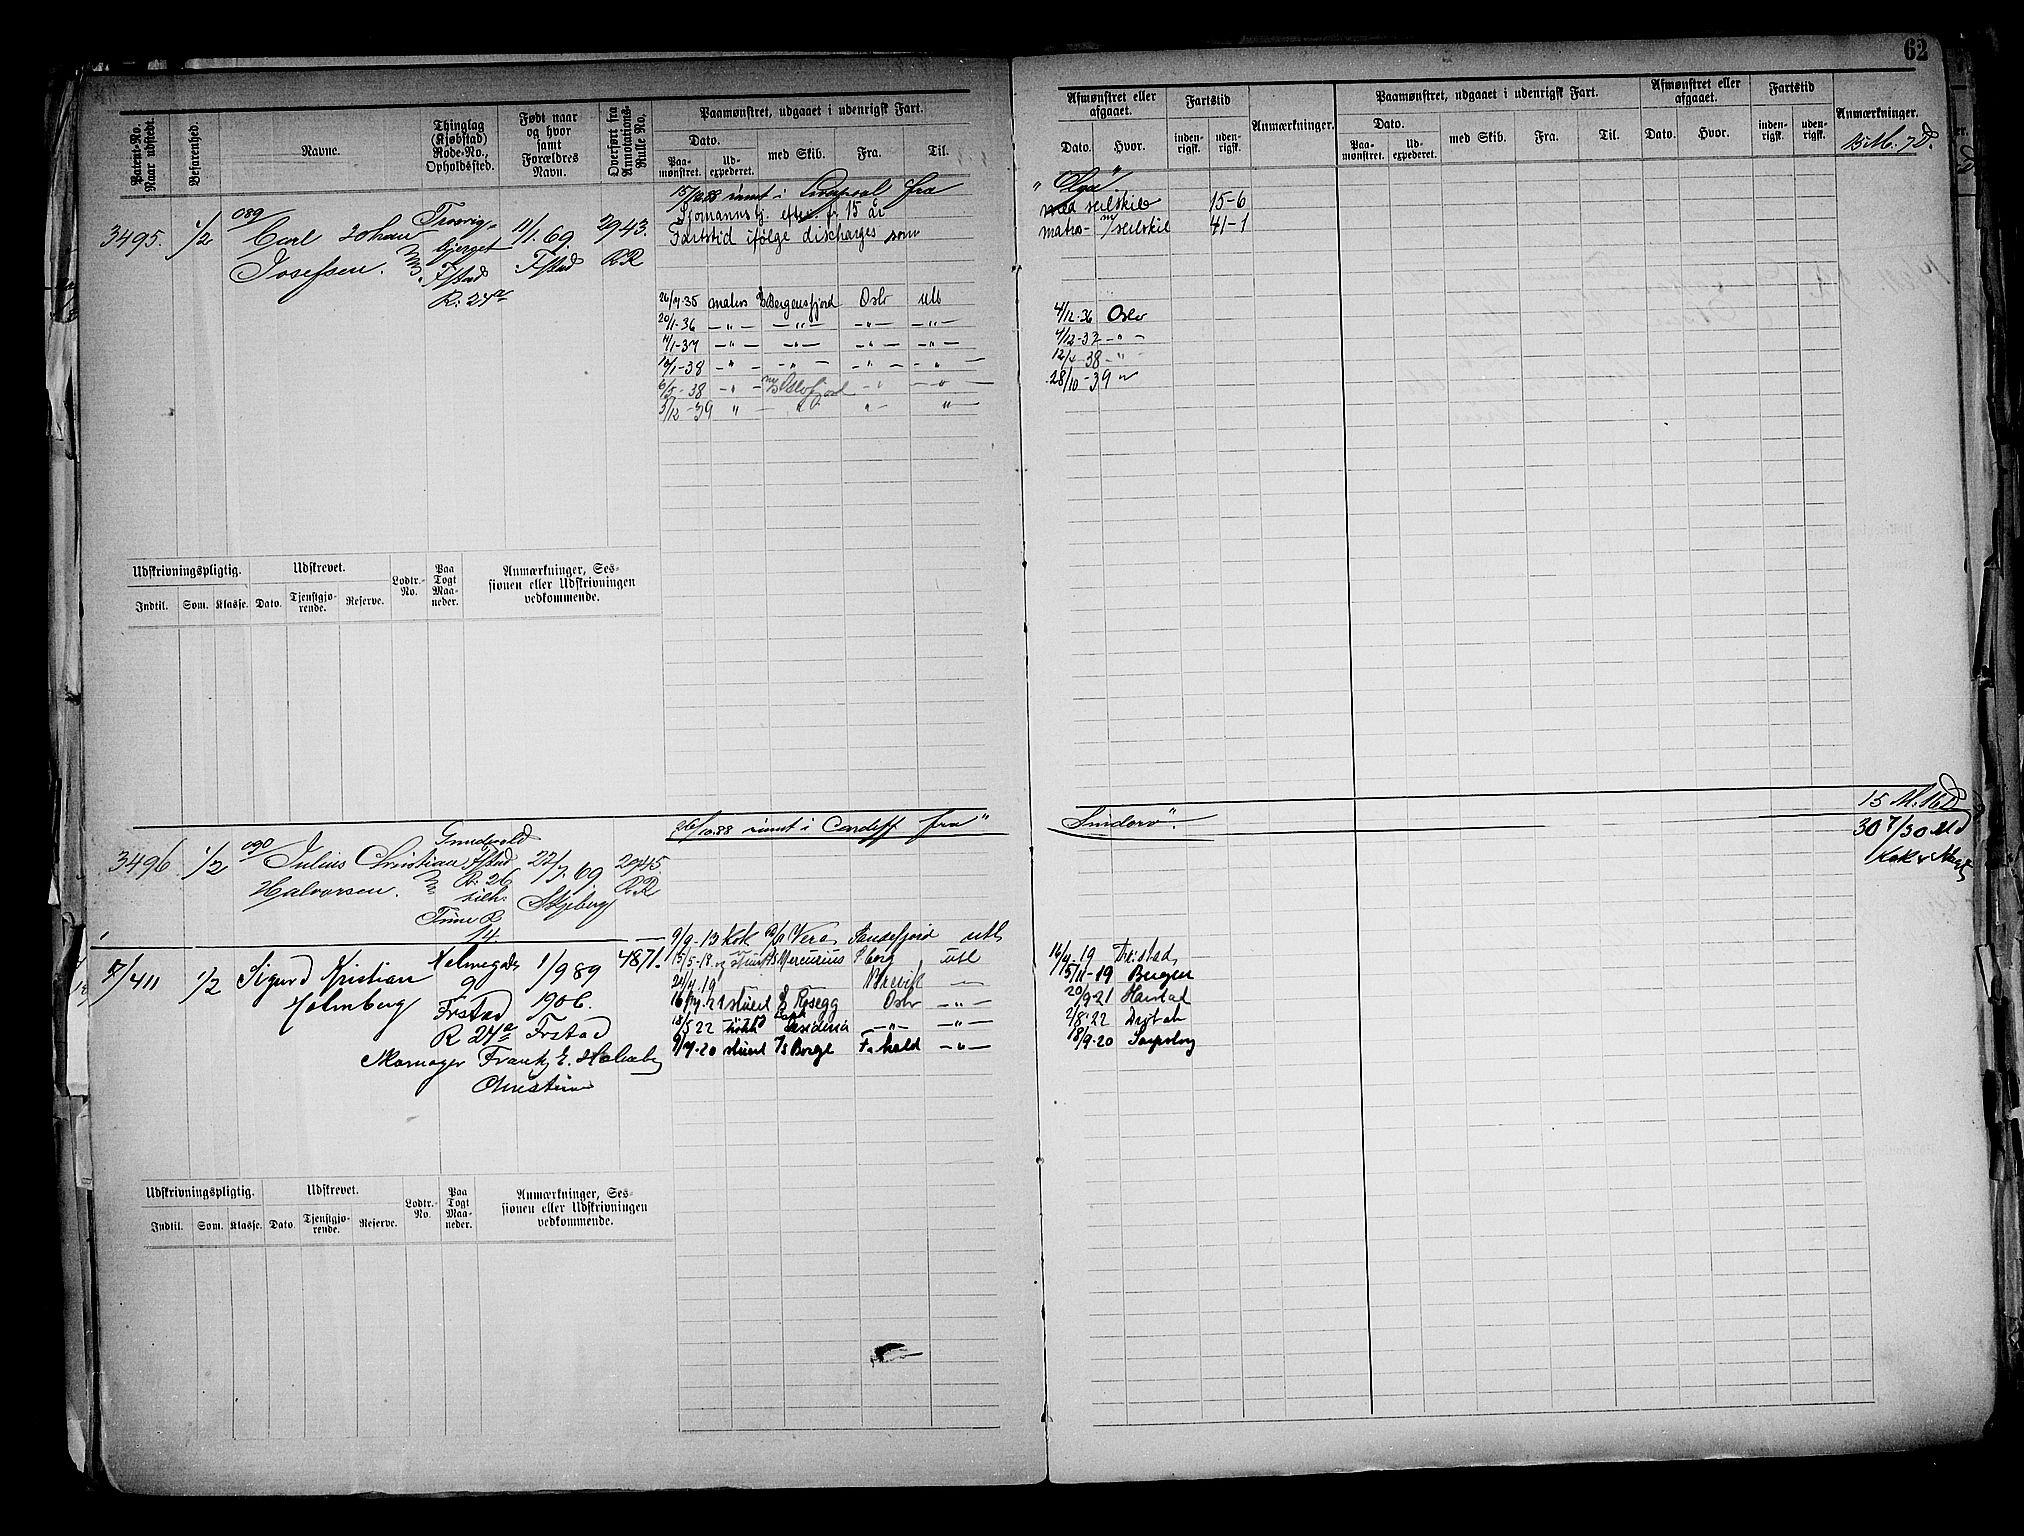 62
Patent-No. Naar udstedt.
Befarenhed.
Navne.
Thinglag (Kjøbstad) Rode-No., Opholdssted.
Født naar og hvor samt Forældres Navn.
Overført fra Annotations-Rulle No,
Paamønstret, udgaaet i udenrigsk Fart.
Dato.
Paamønstret.
Udexpederet.
med Skib.
Fra.
Til.
Afmønstret eller afgaaet.
Dato.
Hvor.
Fartstid
indenrigsk.
udenrigsk.
Anmærkninger.
Paamønstret, udgaaet i udenrigsk Fart.
Dato.
Paamønstret.
Udexpederet.
med Skib.
Fra.
Til.
Afmønstret eller afgaaet.
Dato.
Hvor.
Fartstid
indenrigsk.
udenrigsk.
Anmærkninger.
15/10 88 rømt i Liverpool fra "Olga".
3495. 1/2 089 Carl Johan
Josefsen.
Fstad
R: 24a
11/1. 69.
Fstad
2943.
RR
Sjømannsbj. efter fr 15 år med seilskib 15-6
Fartstid ifølge discharges som matros- seilskib 41-1
26/7-35 matros Bergensfjord Oslo utl 4/12-36 Oslo
20/1-36 -"- -"- -"- -"- 4/12-37 -"-
11/1-37 -"- -"- -"- -"- 12/4-38 -"-
12/1-38 -"- -"- -"- -"- 28/10-39 "
6/5-38 -"- Oslofjord -"- -"-
3/12-39 " " " "
Udskrivningspligtig.
Udskrevet.
Lodtr.-No.
Paa Togt Maaneder.
Anmærkninger, Sessionen eller Udskrivningen vedkommende.
Indtil. Som. Klasse. Dato. Tjenstgjørende. Reserve.
26/10.88 rømt i Cardiff fra "
15 M. 16 D
3496 1/2 090 Julius Christian
Halvorsen.
Fstad
R: 26
Tune R
14.
27/7. 69
Skjeberg
2945.
RR
7/411 1/2 Sigurd Kristian
Holmberg
9
Frstad
R 24a
1/9 89
1906.
Frstad
4871.
Frantz E. Holmberg
Christine
9/9-13 Kok Vera Sandefjord utl 16/4-19 Frstad
15/5-18 Mercurius S borg utl 15/11-19 Bergen
24/4 19 Brevik 20/9-21 Harstad
stuert Rosegg Oslo -"- 2/8-22
18/5 22 Desideria -"- -"- 18/9-20 Sarpsborg
9/7-20 stuert Borge F. hald -"-
Udskrivningspligtig.
Udskrevet.
Lodtr.-No.
Paa Togt Maaneder.
Anmærkninger, Sessionen eller Udskrivningen vedkommende.
Indtil. Som. Klasse. Dato. Tjenstgjørende. Reserve.